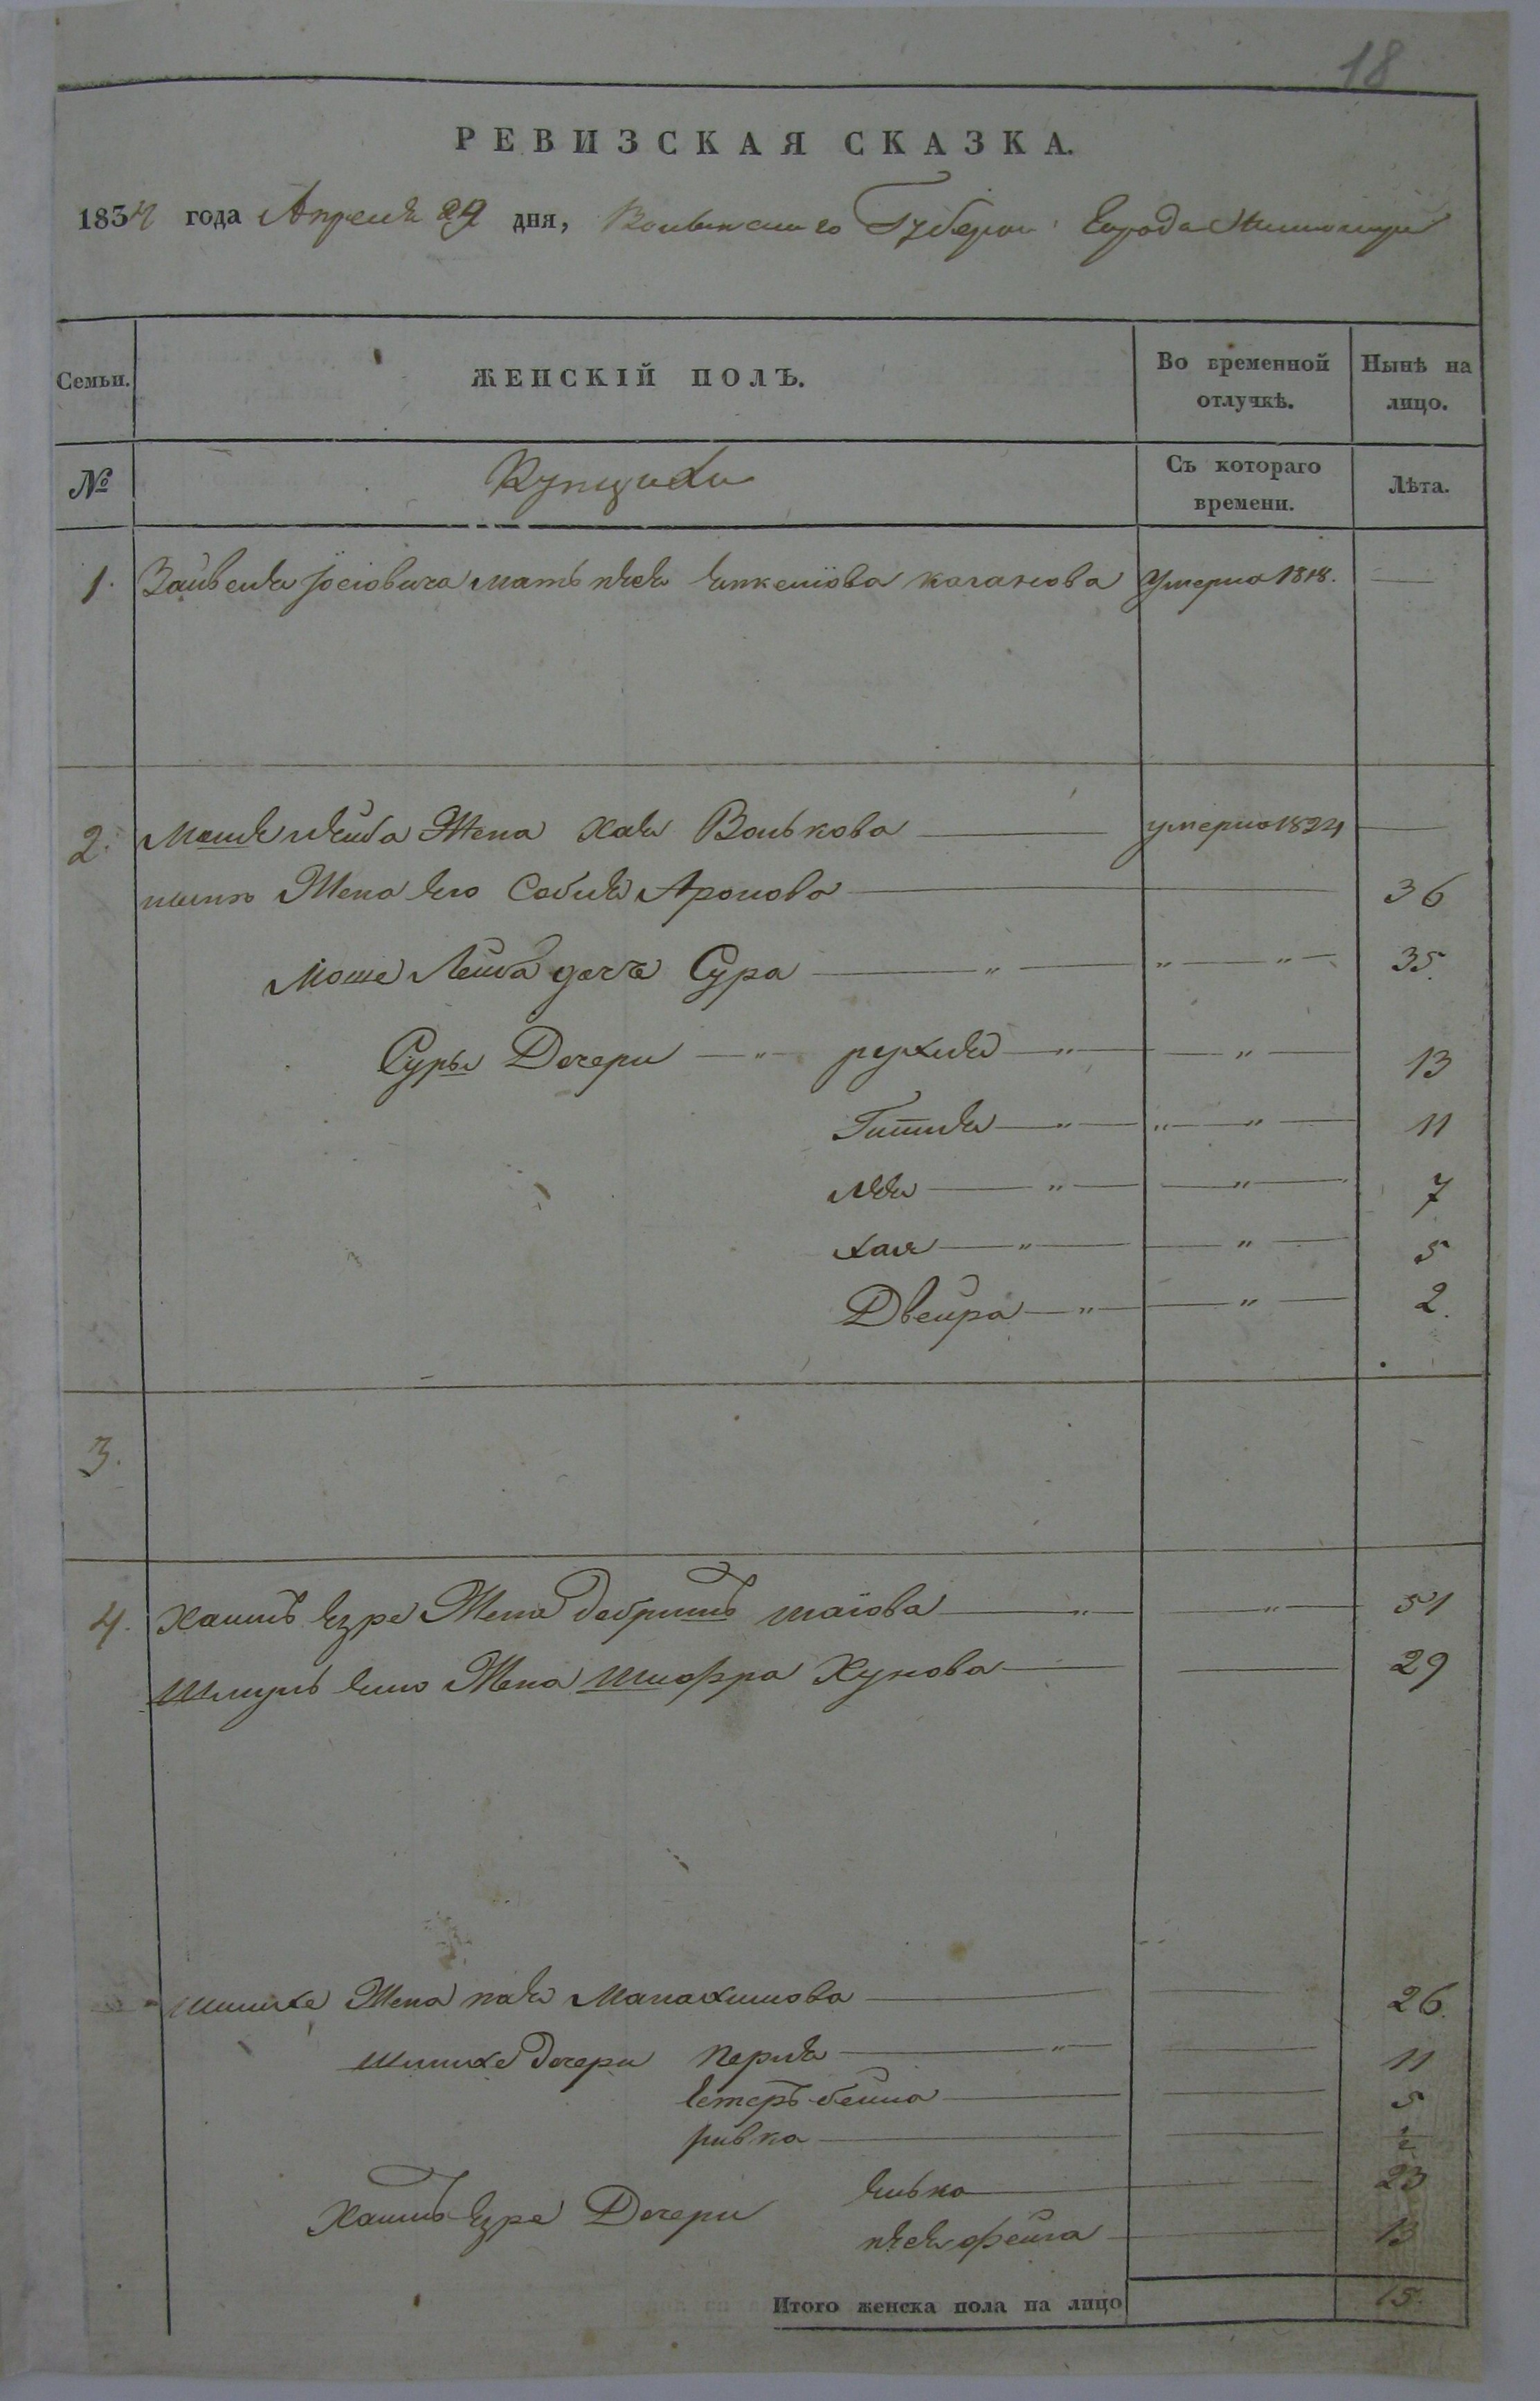 18
РЕВИЗСКАЯ СКАЗКА.
1834 года Апреля 29 дня, Волынского Губернии Города Житомира
Семьи. ЖЕНСКІЙ ПОЛЪ. Во временной отлучкѣ. Нынѣ на лицо.
№ Купцихи Съ котораго времени. Лѣта.
1. Зайвеля Іосіовича мать песя каганова Умерла 1818. —
2. Мошя лейба Жена хая Волькова — умерла 1824 —
Жена его Собыля Аронова — 36
Моше Лейба дочь Сура — " — " — " — 35.
Суры Дочери — " — рухля — " — " — 13
Гитля — " — " — " — 11
лея — " — " — 7
хая — " — " — 5
Двейра — " — " — 2.
3.
4. хаимъ езре Жена добришъ шаіова — " — " — 51
Шмуль Жена Шифра Хунова — 29
Жена Манахимова — 26.
Дочери перля — " — 11
естеръ бейла — 5
ривка — ½
Хаимъ езре Дочери 23
песя фейга — 13
Итого женска пола на лицо 15.